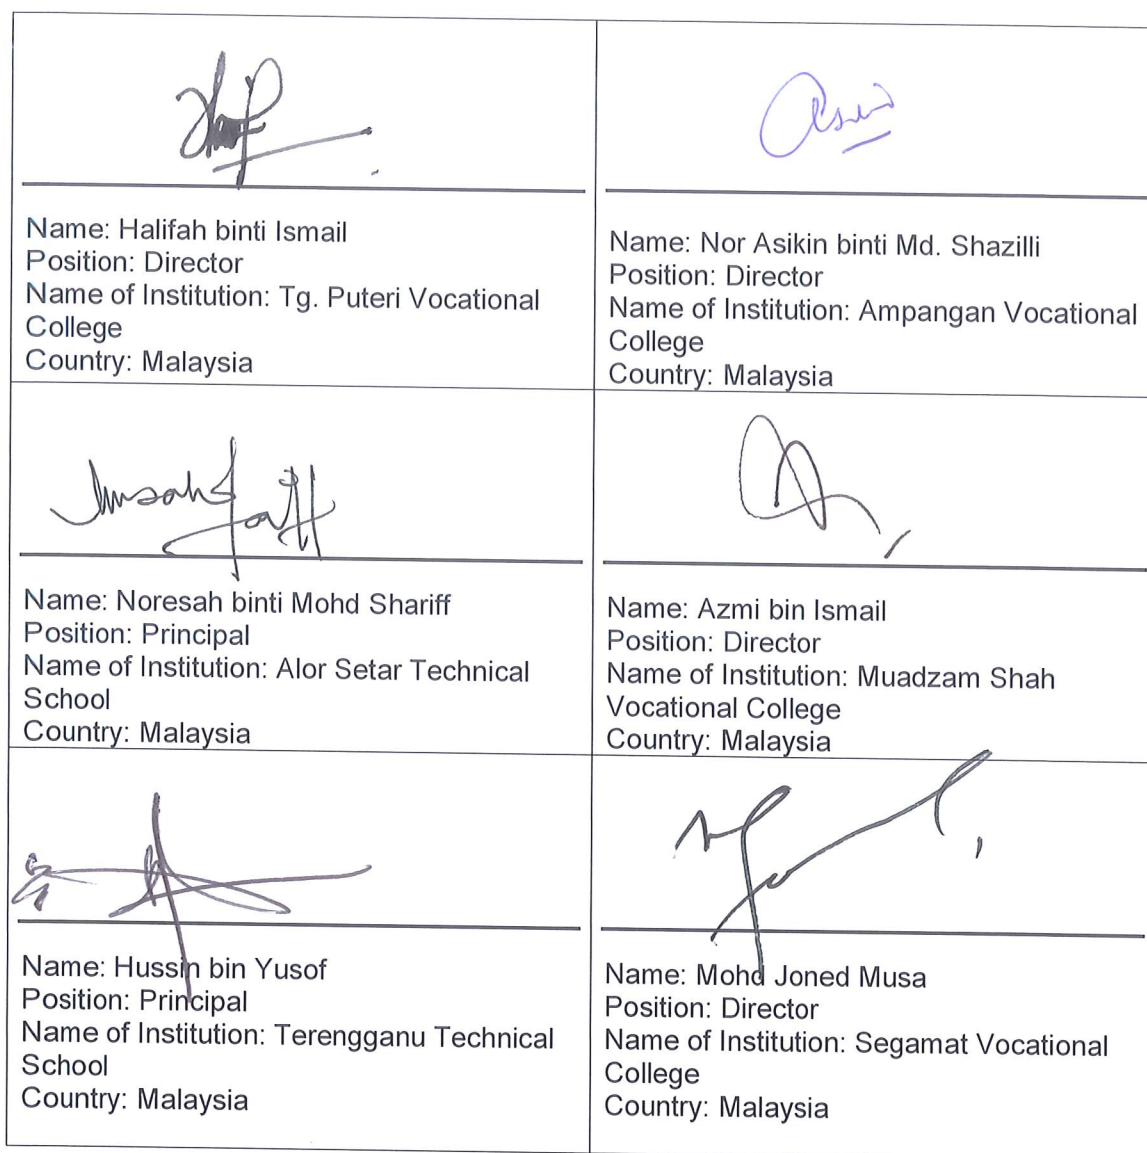 Name: Halifah binti Ismail
Position: Director
Name of Institution: Tg. Puteri Vocational
College
Country: Malaysia
Name: Nor Asikin binti Md. Shazilli
Position: Director
Name of Institution: Ampangan Vocational
College
Country: Malaysia
Name: Noresah binti Mohd Shariff
Position: Principal
Name of Institution: Alor Setar Technical
School
Country: Malaysia
Name: Azmi bin Ismail
Position: Director
Name of Institution: Muadzam Shah
Vocational College
Country: Malaysia
Name: Hussin bin Yusof
Position: Principal
Name of Institution: Terengganu Technical
School
Country: Malaysia
Name: Mohd Joned Musa
Position: Director
Name of Institution: Segamat Vocational
College
Country: Malaysia